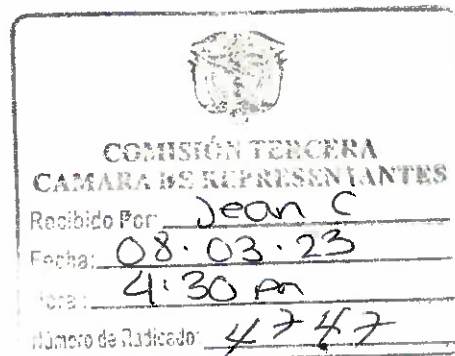 COMISIÓN TERCERA
CAMARA DE REPRESENTANTES
Recibido Por: Jean C
Fecha: 08.03.23
Hora: 4:30 pm
Número de Radicado: 4747